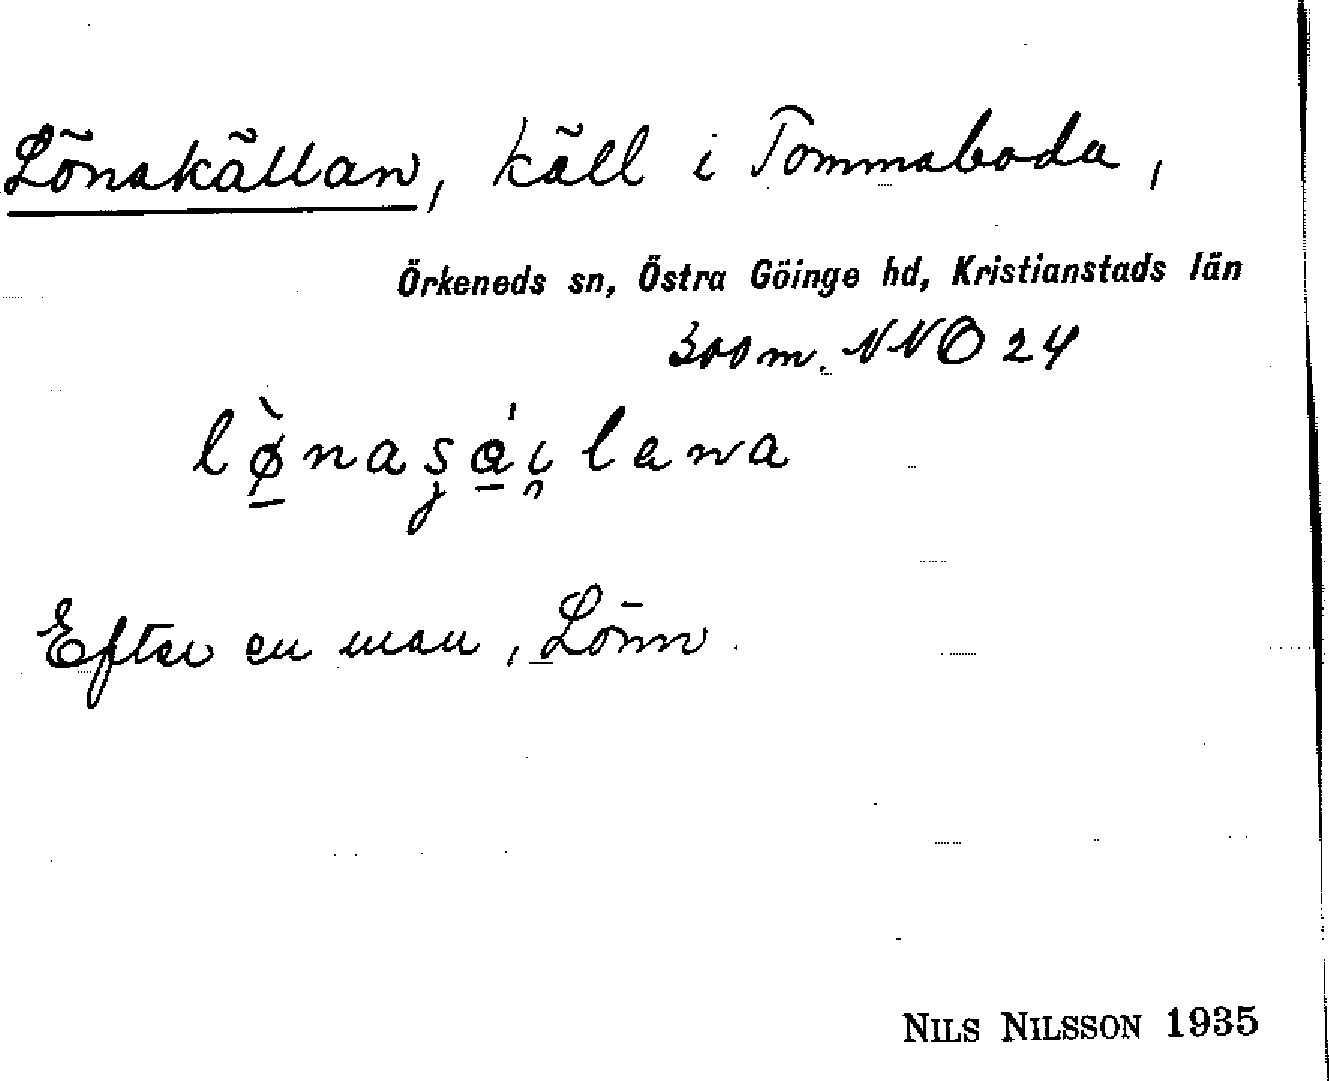 Lönakällan, käll i Tommaboda,
Örkeneds sn, Östra Göinge hd, Kristianstads län
300 m. NNO 24
Efter en man, Lönn.
NILS NILSSON 1935